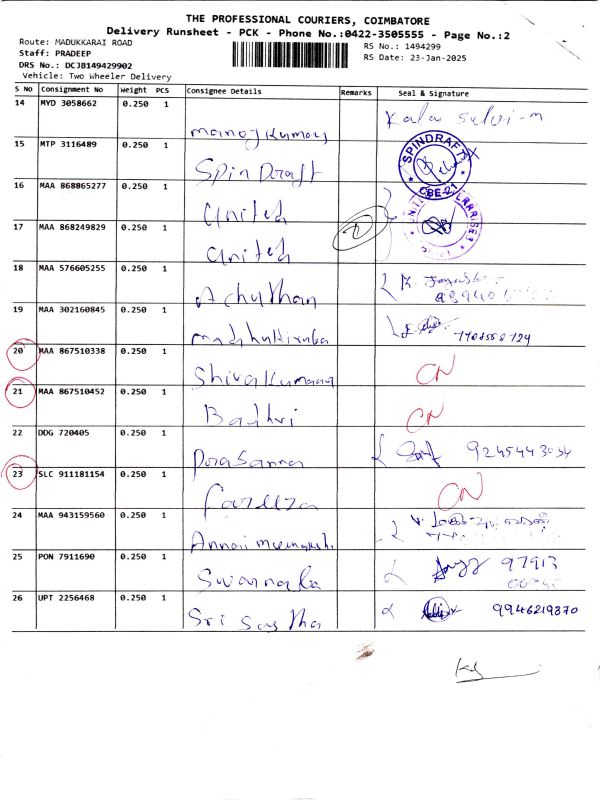 THE PROFESSIONAL COURIERS, COIMBATORE
Delivery Runsheet - PCK - Phone No.:0422-3505555 - Page No.:2
Route: MADUKKARAI ROAD
RS No.: 1494299
Staff: PRADEEP
RS Date: 23-Jan-2025
DRS No.: DCJB149429902
Vehicle: Two Wheeler Delivery
S No Consignment No Weight PCS Consignee Details Remarks Seal & Signature
14 MYD 3058662 0.250 1 Manoj Kumar Kalai Selvi-M
15 MTP 3116489 0.250 1 Spin Draft SPINDRAFT CBE-21
16 MAA 868865277 0.250 1 United
17 MAA 868249829 0.250 1 United
18 MAA 576605255 0.250 1 Achuthan K.
19 MAA 302160845 0.250 1
20 MAA 867510338 0.250 1 Shiva Kumaar CN
21 MAA 867510452 0.250 1 Badhri CN
22 DDG 720405 0.250 1 Prasanna 9245443034
23 SLC 911181154 0.250 1 CN
24 MAA 943159560 0.250 1
25 PON 7911690 0.250 1 97913
26 UPT 2256468 0.250 1 Sri Sastha 9946219870